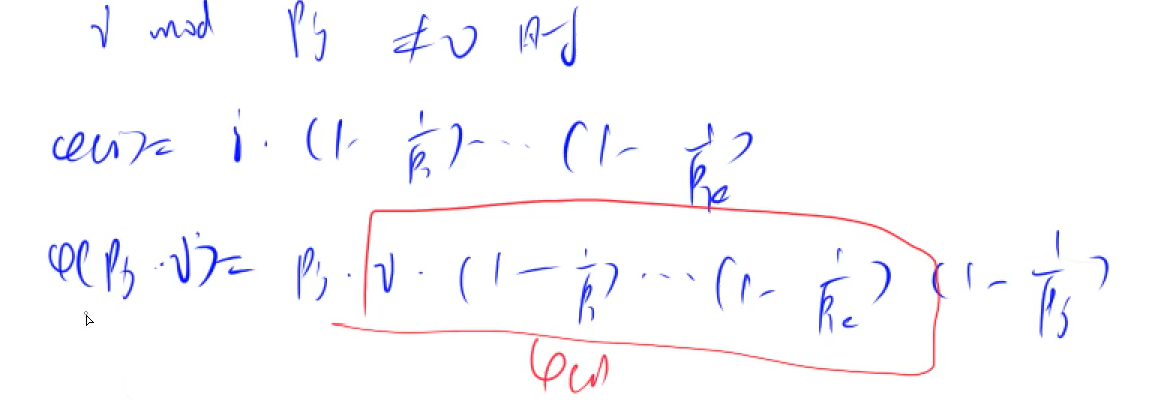 i mod Pj ≠ 0 时
φ(i) = i · (1 - 1/P1) ... (1 - 1/Pk)
φ(Pj · i) = Pj · i · (1 - 1/P1) ... (1 - 1/Pk) (1 - 1/Pj)
φ(i)